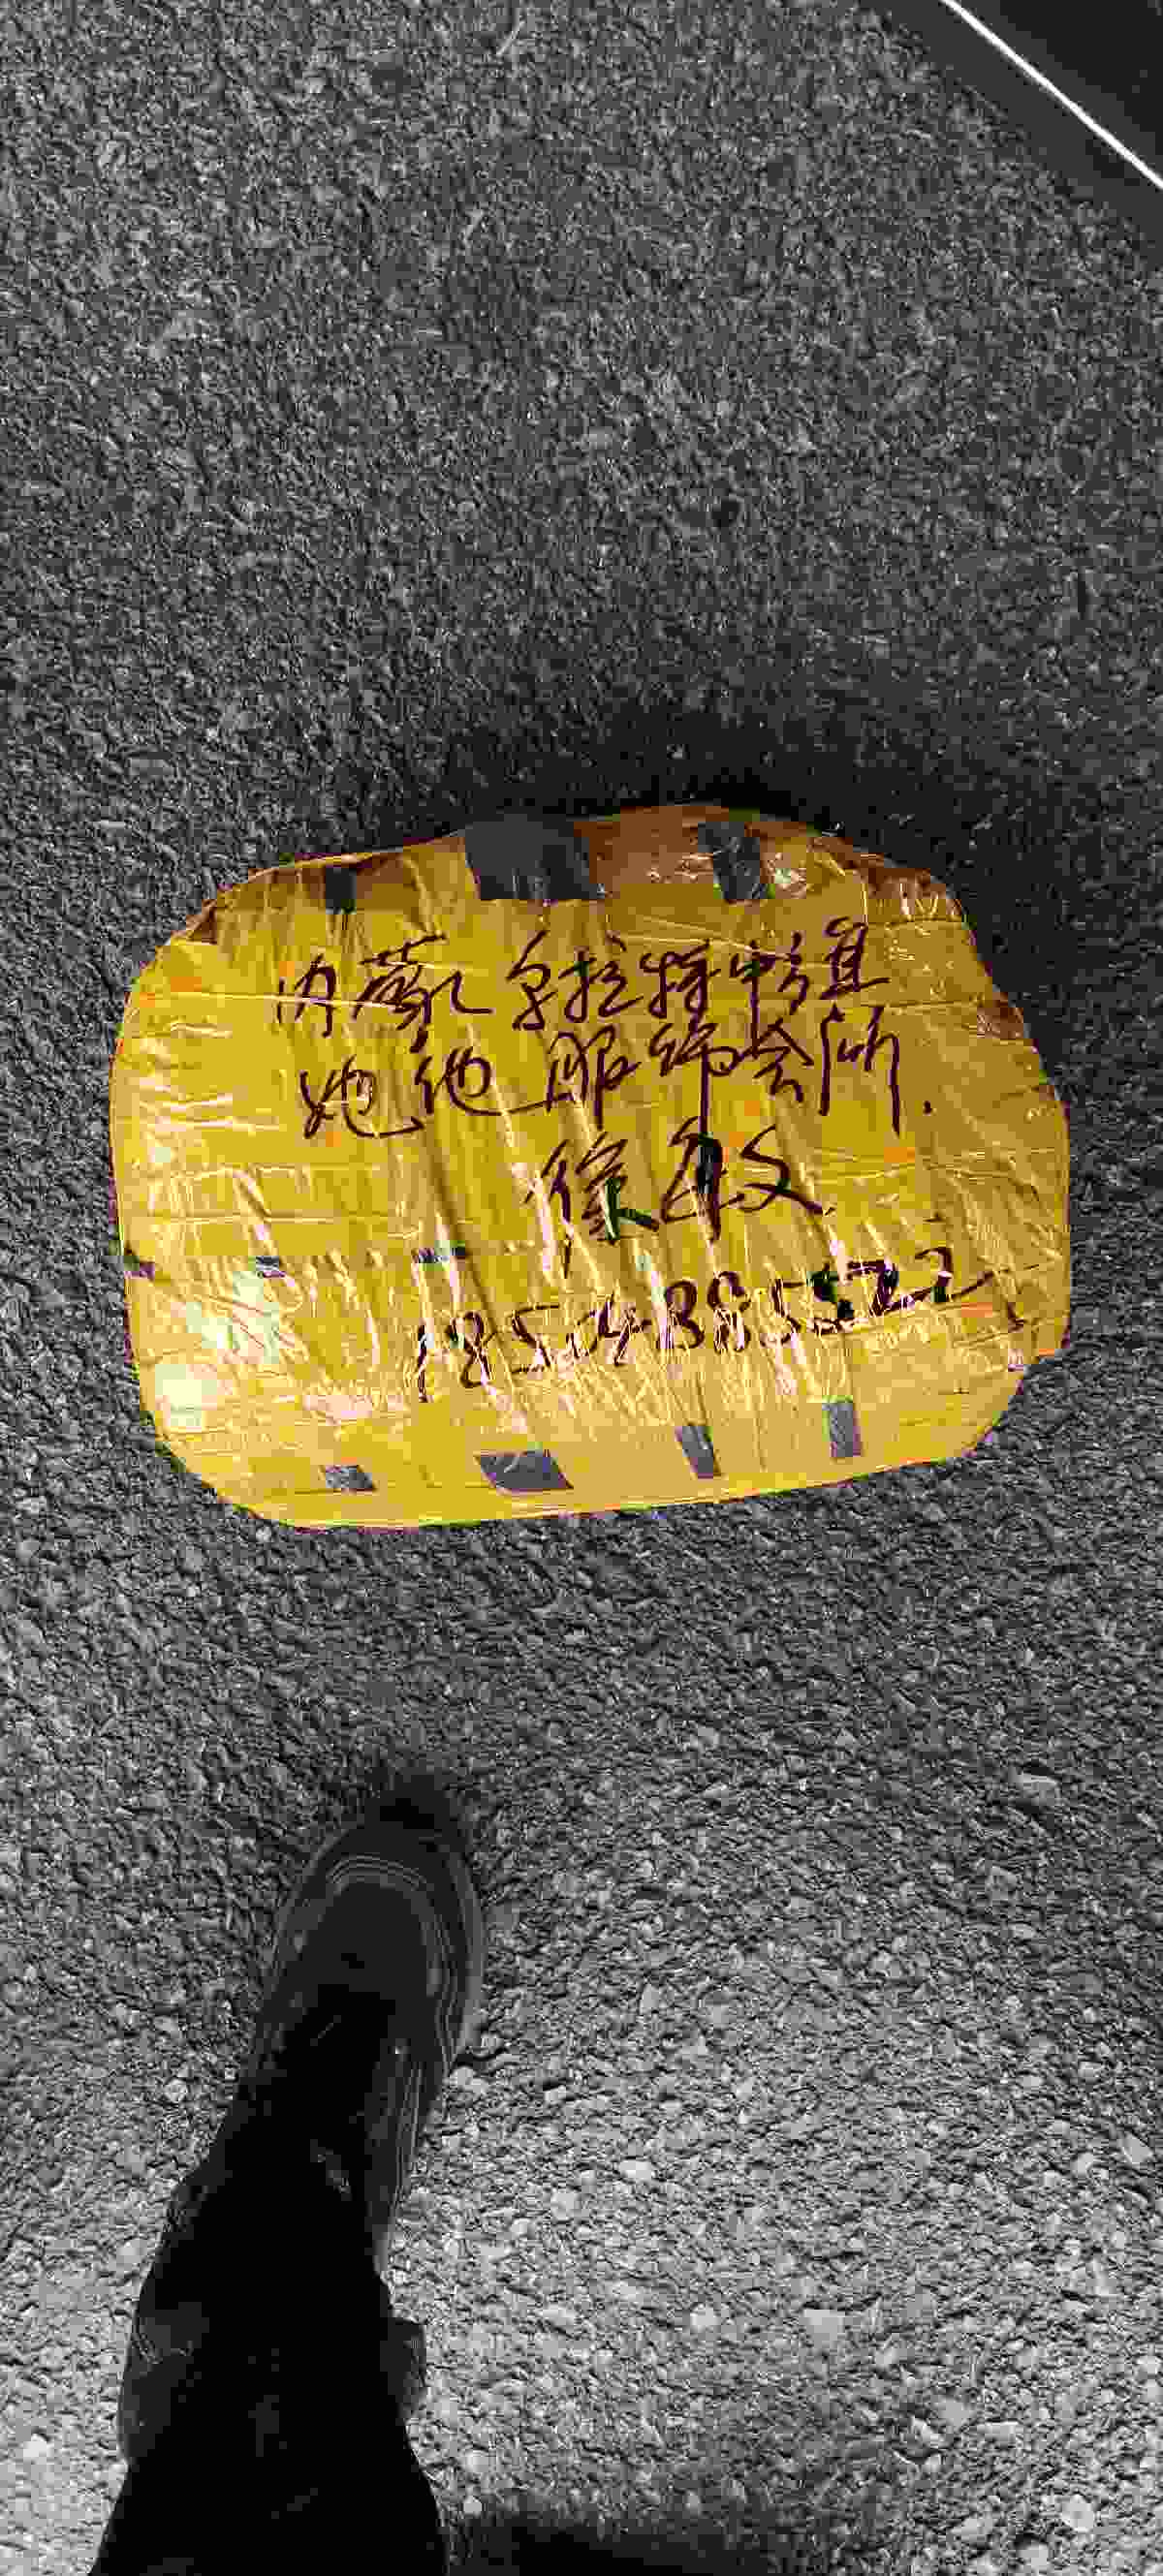 内蒙乌拉特中旗
她他服饰会所.
徐敏.
18504885522